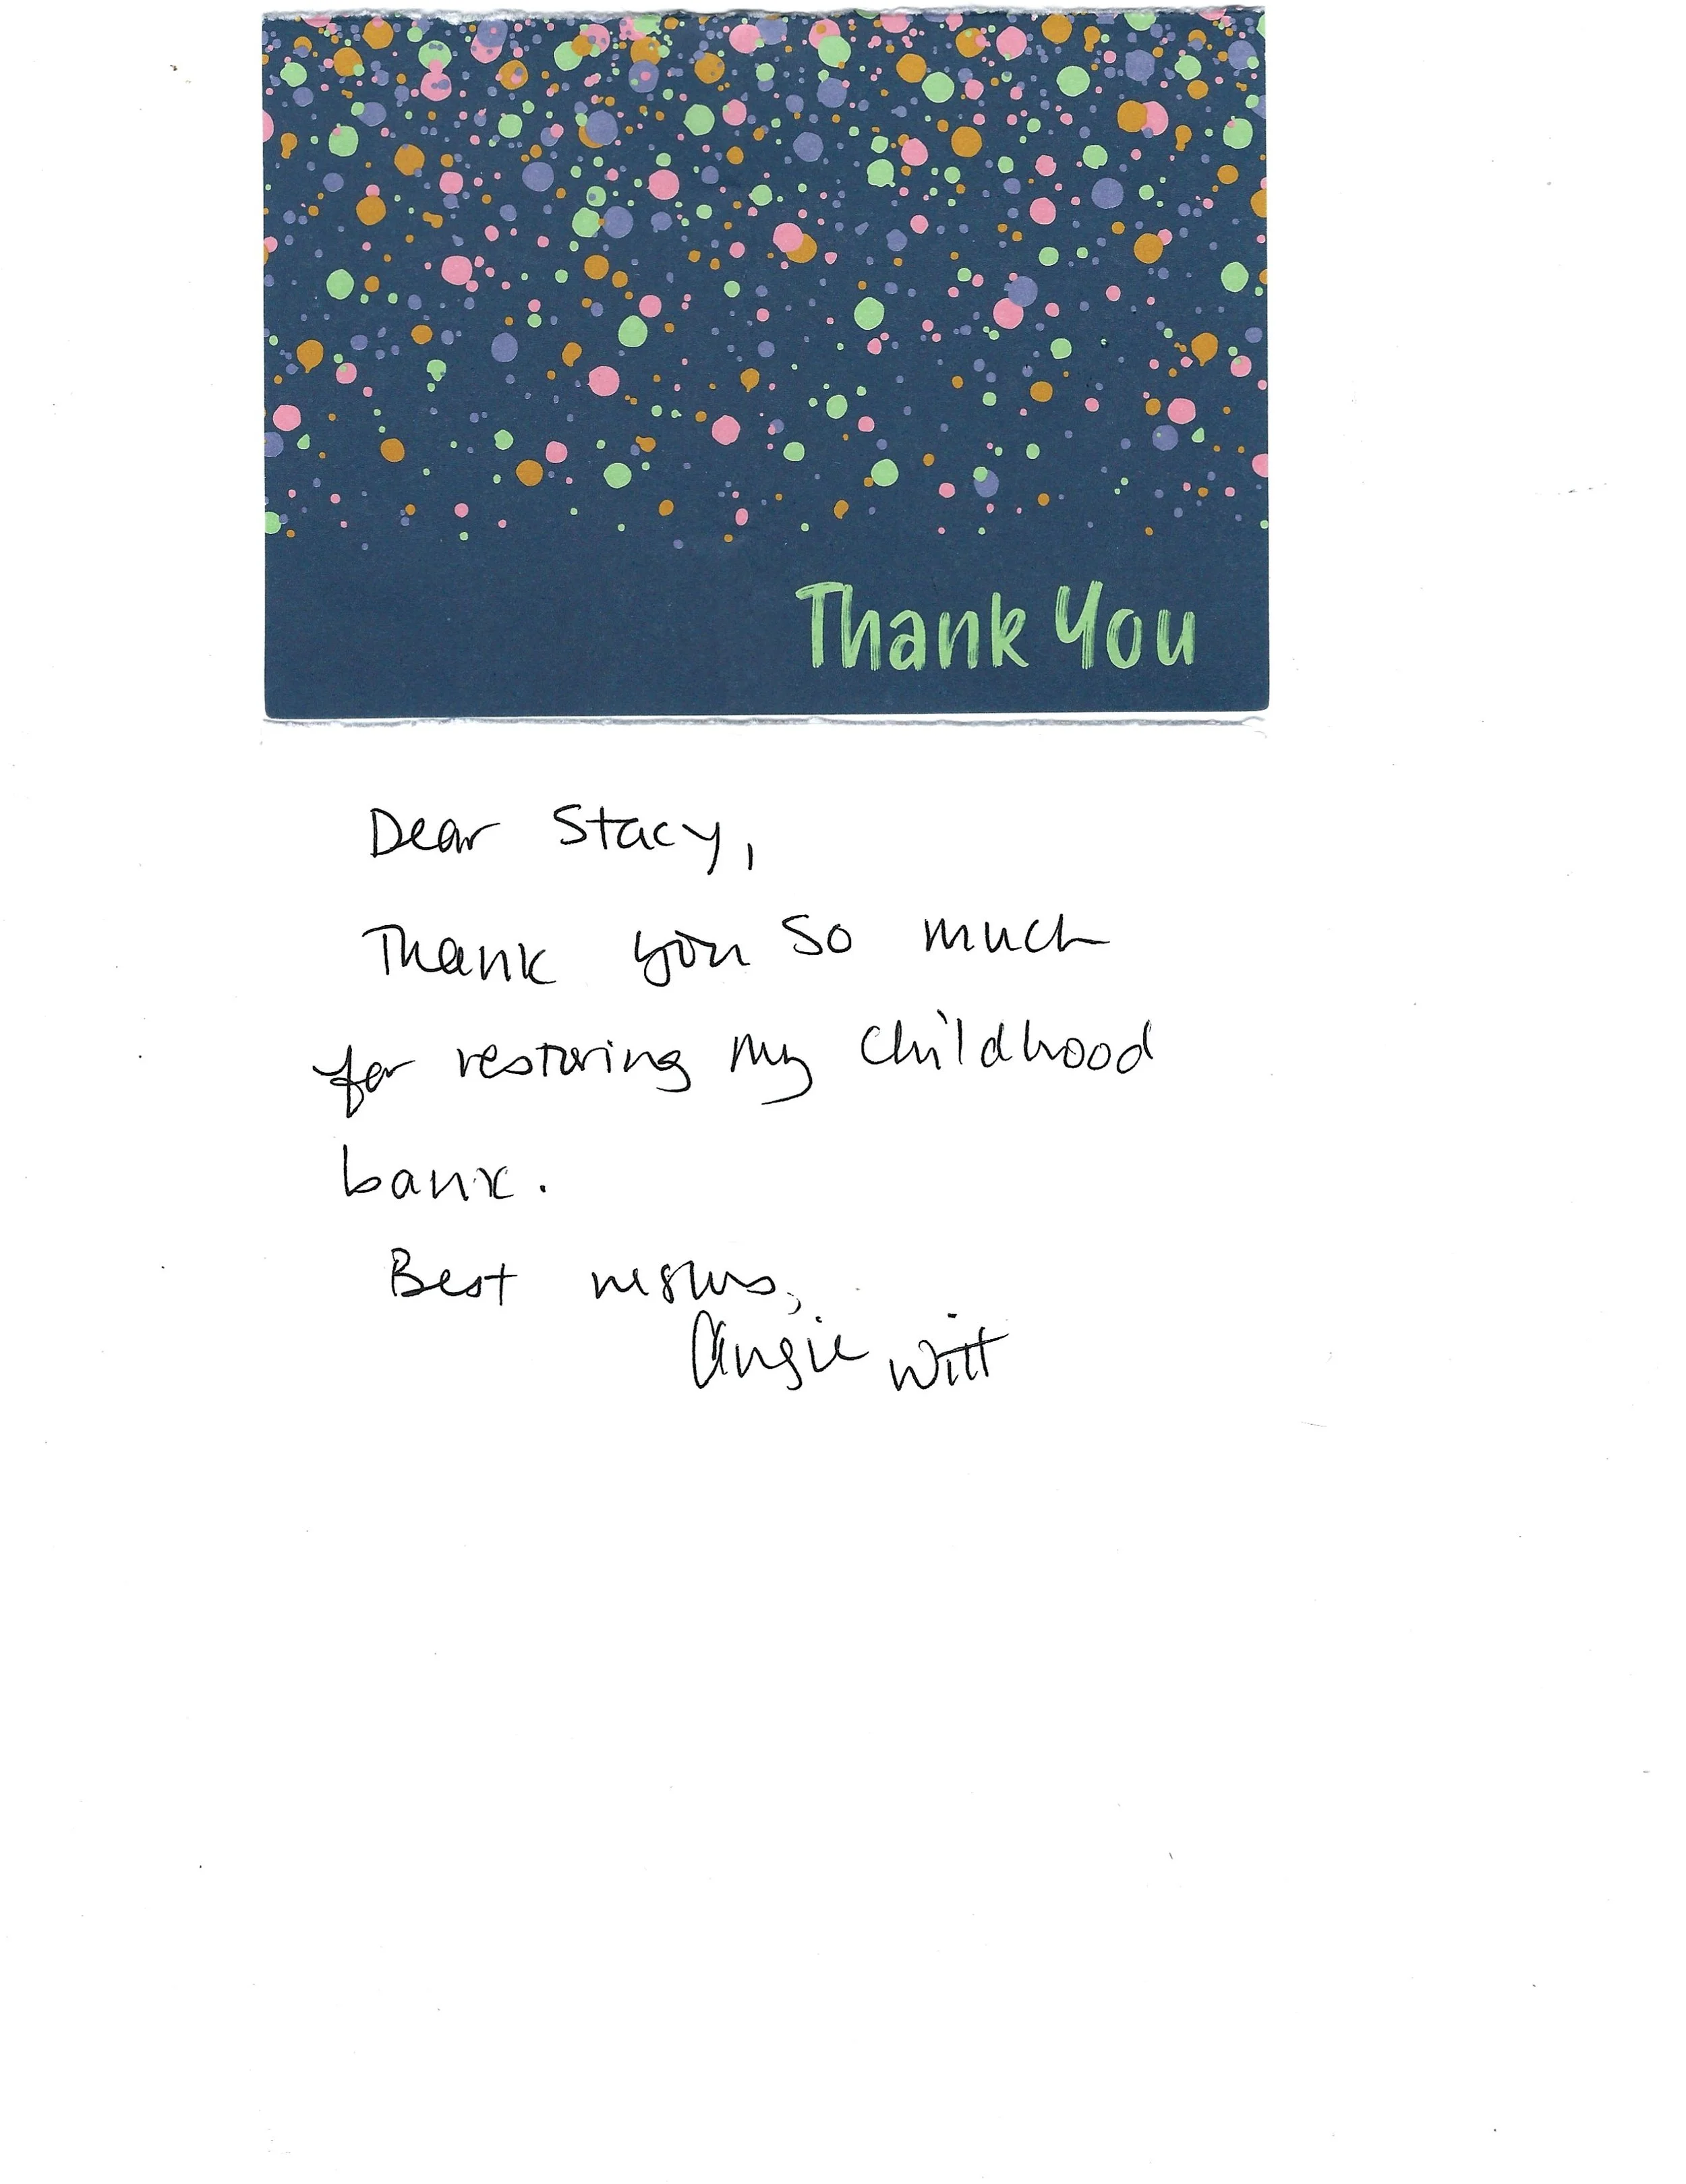 Thank You
Dear Stacy,
Thank you so much
for restoring my childhood
bank.
Best wishes,
Angie Witt